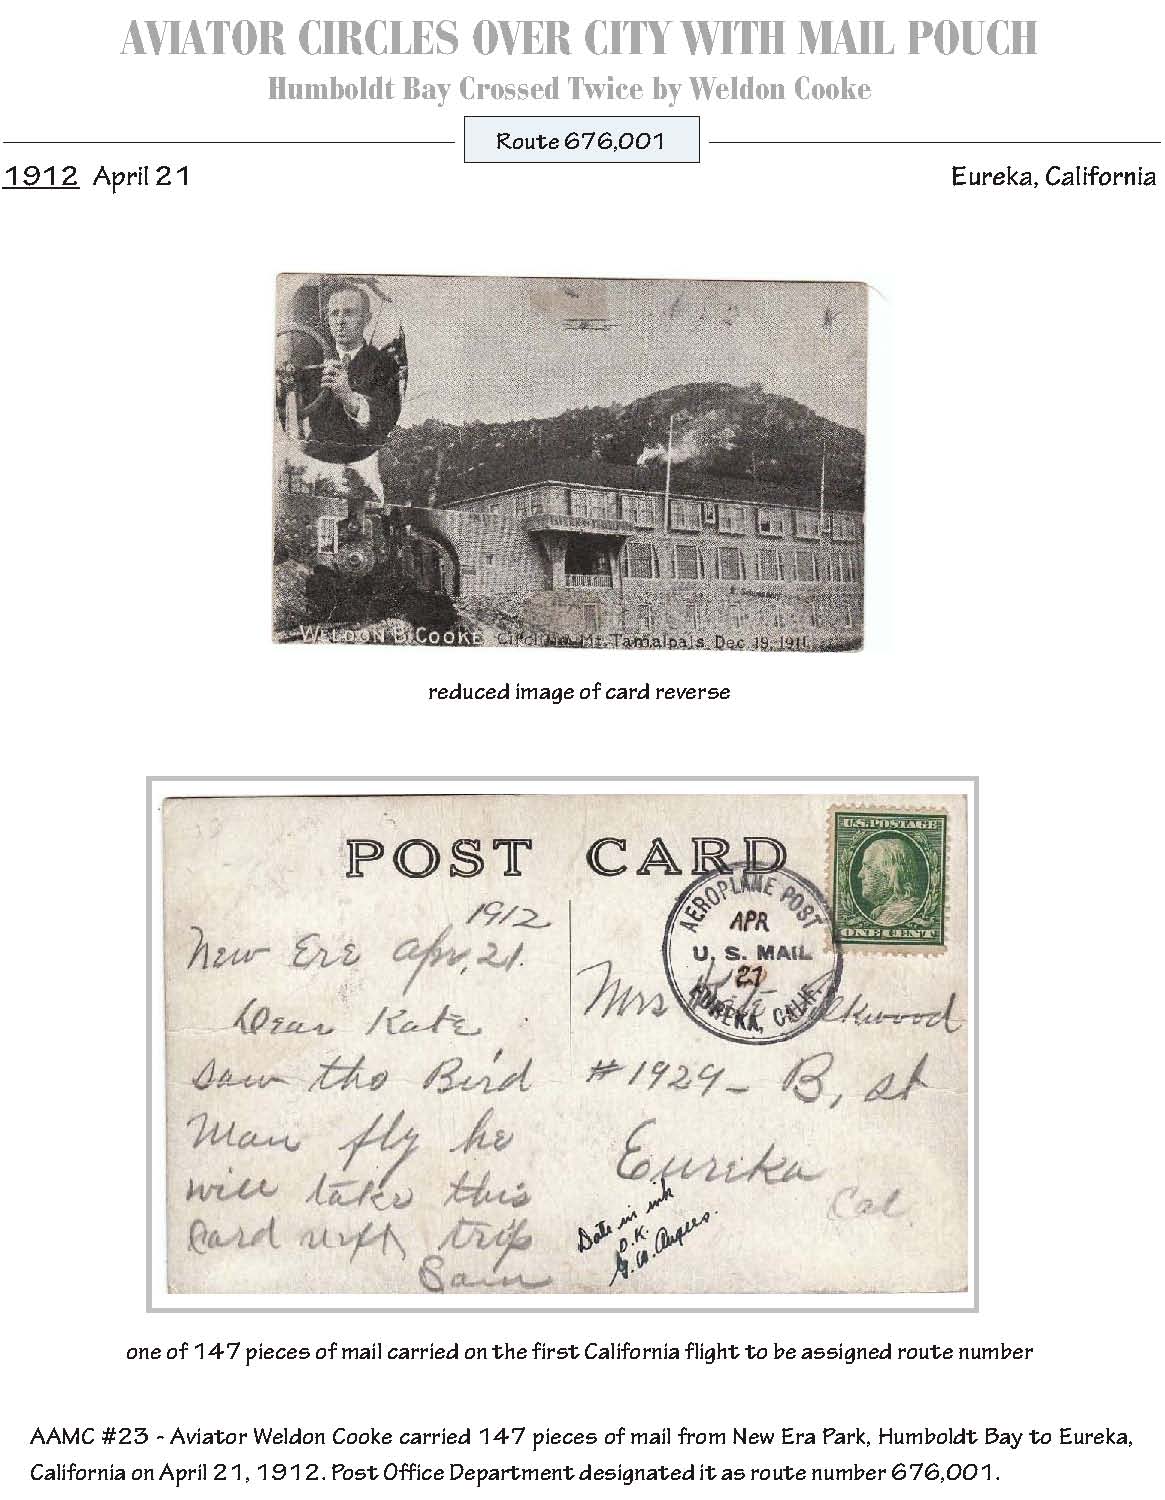 AVIATOR CIRCLES OVER CITY WITH MAIL POUCH
Humboldt Bay Crossed Twice by Weldon Cooke
Route 676,001
1912 April 21
Eureka, California
WELDON B. COOKE Circling Mt. Tamalpais Dec 19, 1911
reduced image of card reverse
POST CARD
U.S. POSTAGE
ONE CENT
AEROPLANE POST
APR
U. S. MAIL
21
EUREKA, CALIF.
1912
New Ere Apr, 21.
Dear Kate,
Saw tho Bird
Man fly he
will take this
Card next trip
Sam
Mrs Kate Elkwood
#1929 - B, st
Eureka
Cal.
Date in ink
O.K.
one of 147 pieces of mail carried on the first California flight to be assigned route number
AAMC #23 - Aviator Weldon Cooke carried 147 pieces of mail from New Era Park, Humboldt Bay to Eureka,
California on April 21, 1912. Post Office Department designated it as route number 676,001.